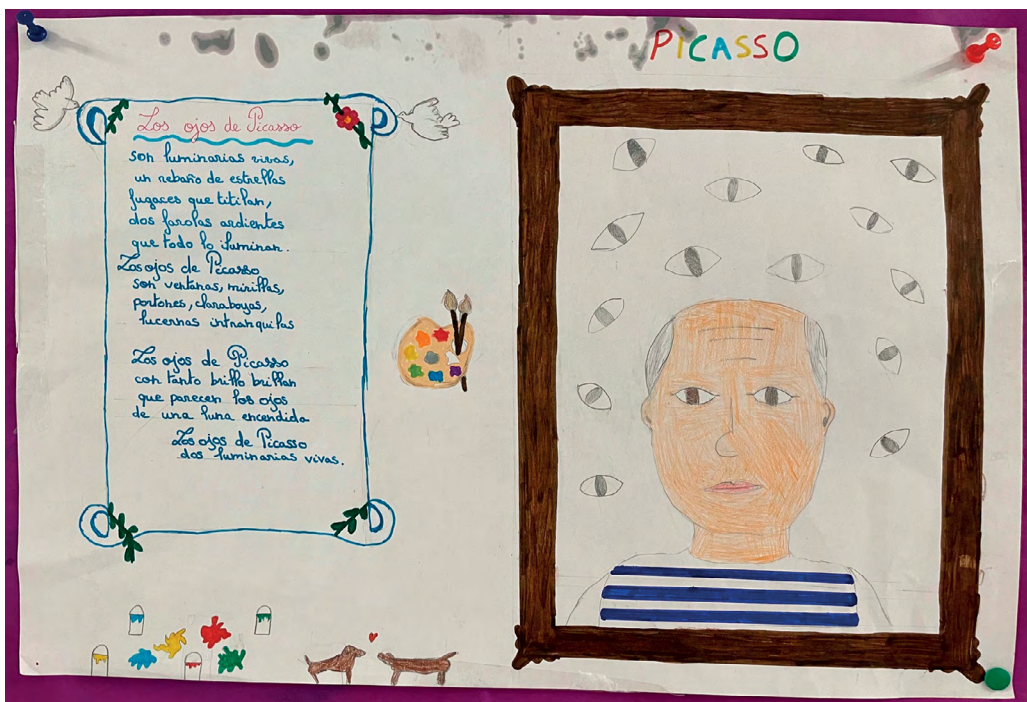 PICASSO
Los ojos de Picasso
son luminarias vivas,
un rebaño de estrellas
fugaces que titilan,
dos farolas ardientes
que todo lo iluminan.
Los ojos de Picasso
son ventanas, mirillas,
portones, claraboyas,
lucernas intranquilas
Los ojos de Picasso
con tanto brillo brillan
que parecen los ojos
de una luna encendida
Los ojos de Picasso
dos luminarias vivas.